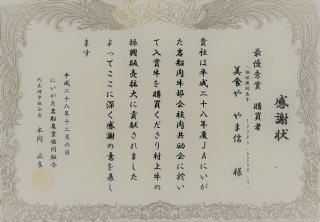 感謝状
最優秀賞　購買者
美食や　やま信　様
貴社は平成二十八年度JAにいが
た岩船肉牛部会枝肉共励会に於い
て入賞牛を購買くださり村上牛の
振興販売拡大に貢献されました
よってここに深く感謝の意を表し
ます
平成二十八年十二月六日
にいがた岩船農業協同組合
代表理事組合長